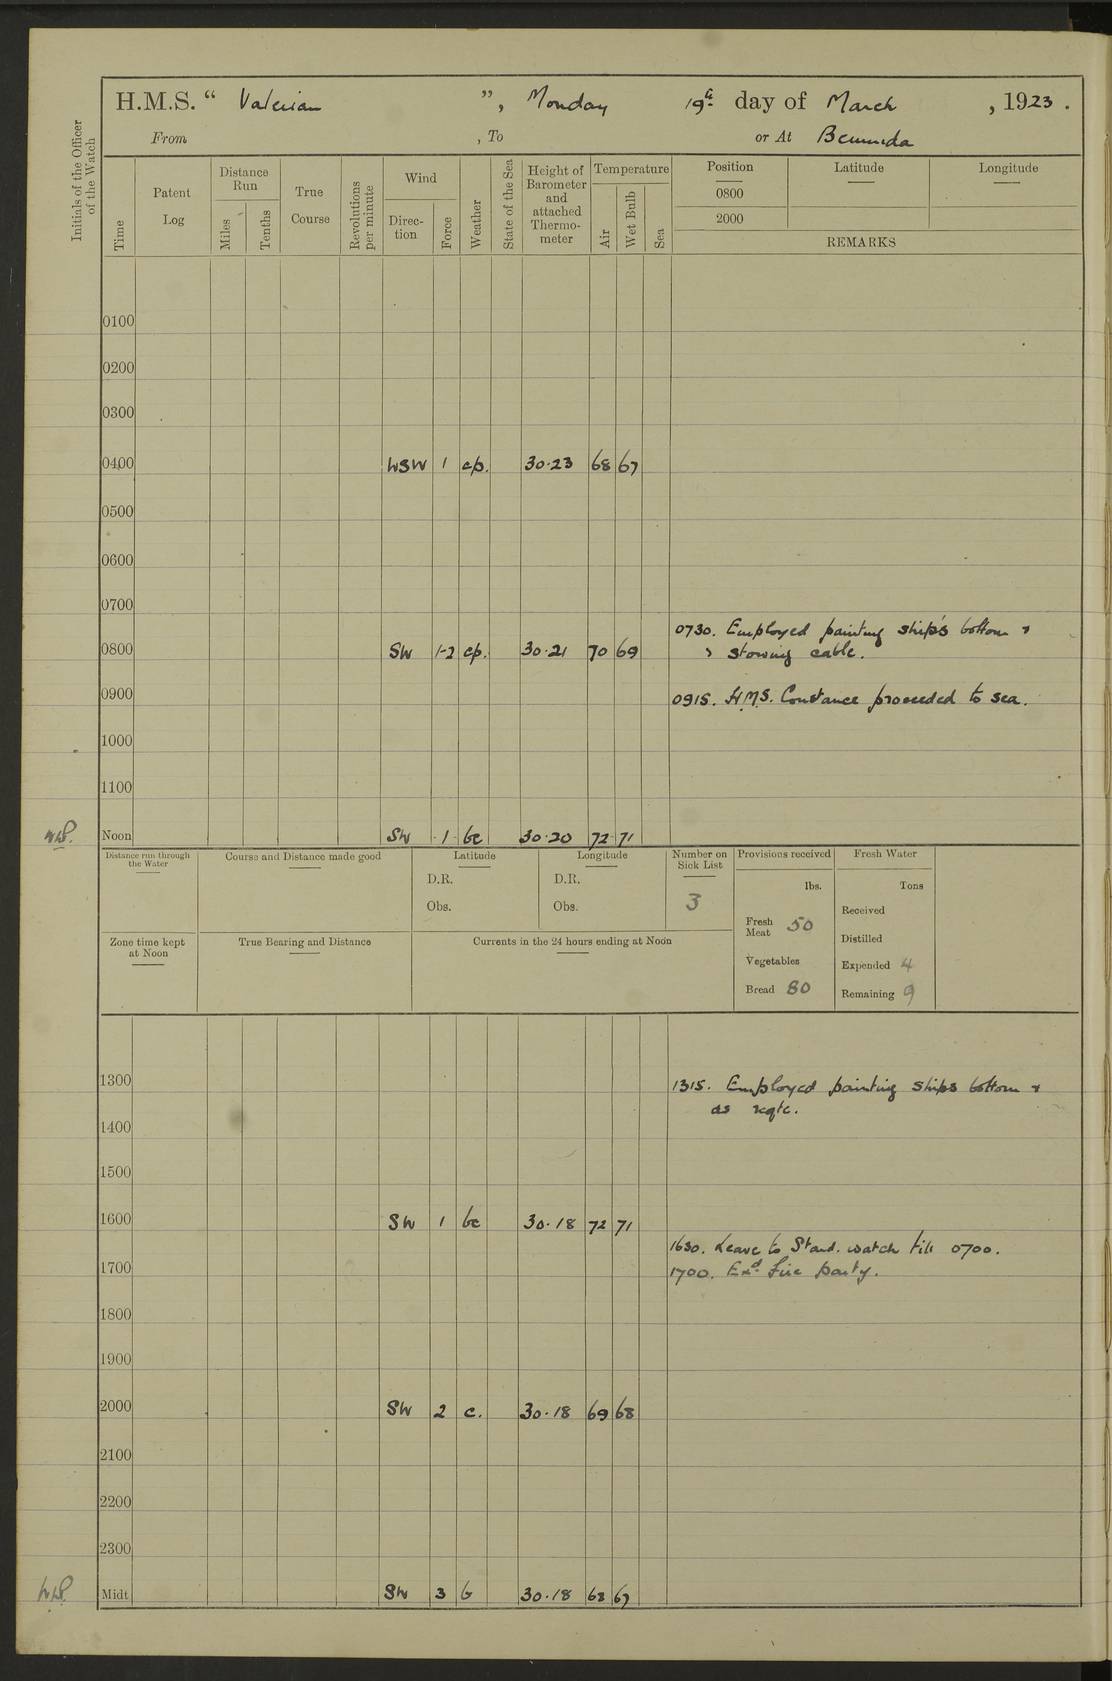 H.M.S. “ Valerian ”, Monday 19th day of March , 1923 .
From , To or At Bermuda
Initials of the Officer of the Watch
Time
Patent Log
Distance Run
Miles
Tenths
True Course
Revolutions per minute
Wind
Direc-tion
Force
Weather
State of the Sea
Height of Barometer and attached Thermo-meter
Temperature
Air
Wet Bulb
Sea
Position Latitude Longitude
0800
2000
REMARKS
0100
0200
0300
0400 WSW 1 cp. 30.23 68 67
0500
0600
0700
0730. Employed painting ship's bottom &
0800 SW 1-2 cp. 30.21 70 69 " stowing cable.
0900 0915. H.M.S. Constance proceeded to sea.
1000
1100
Noon SW 1 bc 30.20 72 71
Distance run through the Water
Course and Distance made good
Latitude
D.R.
Obs.
Longitude
D.R.
Obs.
Number on Sick List
3
Provisions received
lbs.
Fresh Meat 50
Vegetables
Bread 80
Fresh Water
Tons
Received
Distilled
Expended 4
Remaining 9
Zone time kept at Noon
True Bearing and Distance
Currents in the 24 hours ending at Noon
1300 1315. Employed painting ships bottom &
as reqte.
1400
1500
1600 SW 1 bc 30.18 72 71
1630. Leave to Starb. watch till 0700.
1700 1700. Exd fire party.
1800
1900
2000 SW 2 c. 30.18 69 68
2100
2200
2300
Midt SW 3 b 30.18 68 67